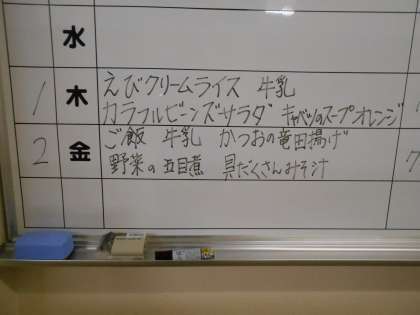 水
1 木 えびクリームライス 牛乳
カラフルビーンズサラダ キャベツのスープ オレンジ
2 金 ご飯 牛乳 かつおの竜田揚げ
野菜の五目煮 具だくさんみそ汁